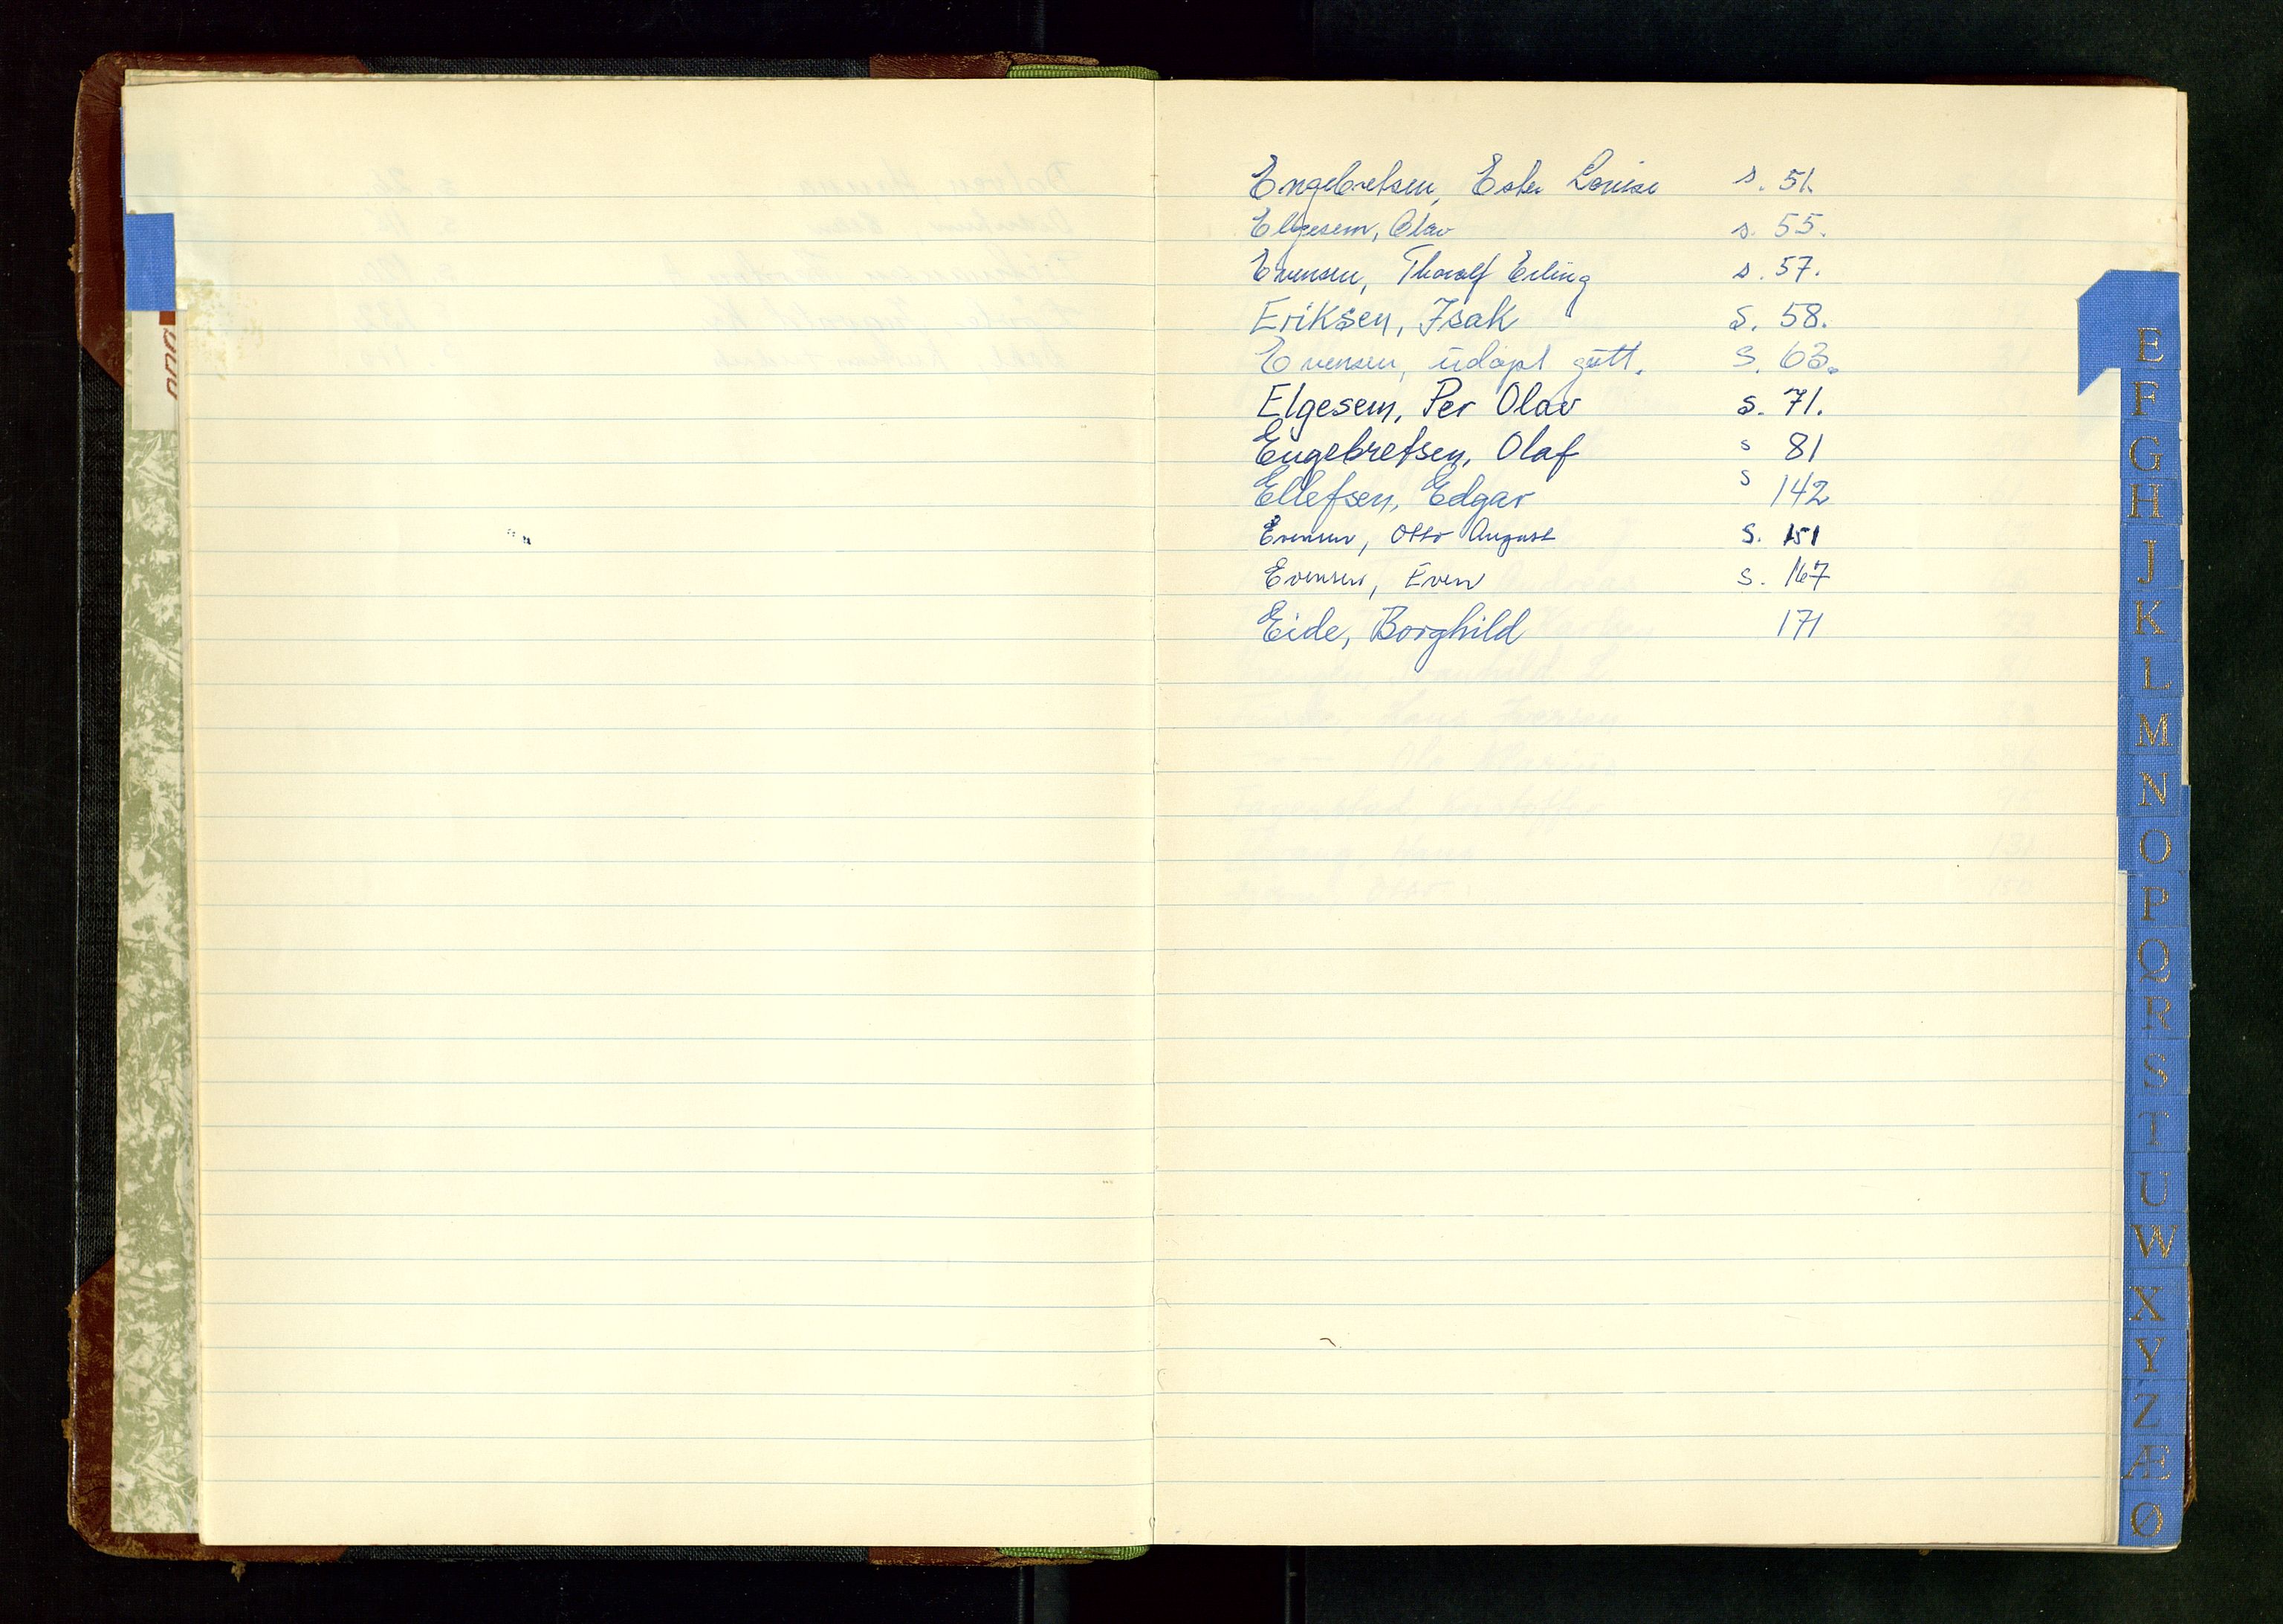 Engebretsen, Ester Louise s. 51.
Elgesem, Olav s. 55.
Evensen, Thoralf Erling s. 57.
Eriksen, Isak S. 58.
Evensen, udøpt gutt. S. 63.
Elgesem, Per Olav s. 71.
Engebretsen, Olaf s 81
Ellefsen, Edgar s 142
Evensen, Otto August S. 151
Evensen, Even s. 167
Eide, Borghild 171
E
F
G
H
J
K
L
M
N
O
P
Q
R
S
T
U
W
X
Y
Z
Æ
Ø